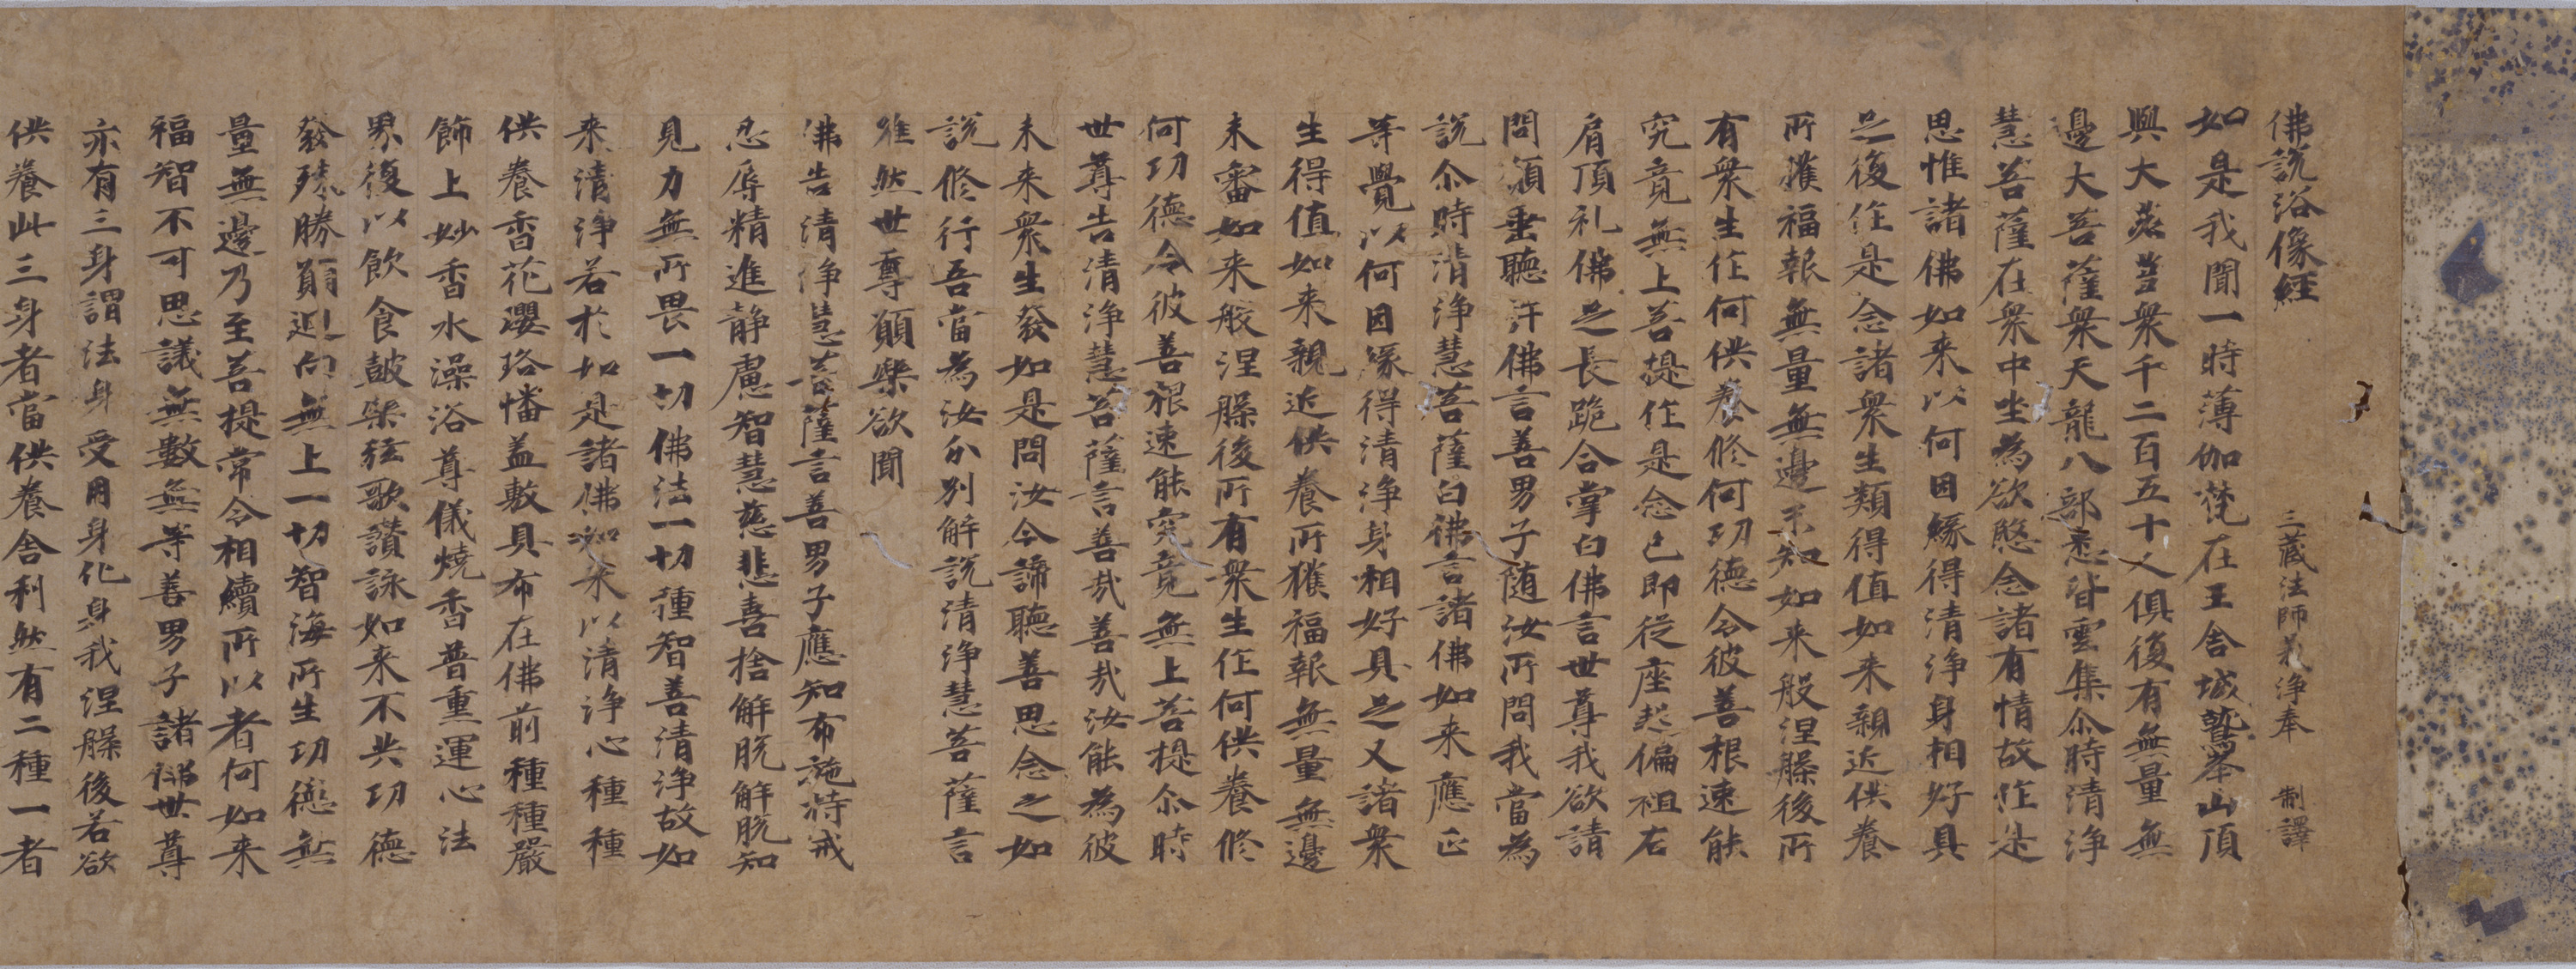 佛說浴像經
三藏法師義淨奉 制譯
如是我聞一時薄伽梵在王舍城鷲峯山頂
與大苾芻衆千二百五十人俱復有無量無
邊大菩薩衆天龍八部悉皆雲集尒時清淨
慧菩薩在衆中坐為欲愍念諸有情故作是
思惟諸佛如来以何因緣得清淨身相好具
足復作是念諸衆生類得值如来親近供養
所獲福報無量無邊不知如来般涅槃後所
有衆生作何供養修何功德令彼善根速能
究竟無上菩提作是念已即從座起偏袒右
肩頂礼佛足長跪合掌白佛言世尊我欲請
問願垂聽許佛言善男子随汝所問我當為
說尒時清淨慧菩薩白佛言諸佛如来應正
等覺以何因緣得清淨身相好具足又諸衆
生得值如来親近供養所獲福報無量無邊
未審如来般涅槃後所有衆生作何供養修
何功德令彼善根速能究竟無上菩提尒時
世尊告清淨慧菩薩言善哉善哉汝能為彼
未来衆生發如是問汝今諦聽善思念之如
說修行吾當為汝分別解說清淨慧菩薩言
唯然世尊願樂欲聞
佛告清淨慧菩薩言善男子應知布施持戒
忍辱精進静慮智慧慈悲喜捨解脫解脫知
見力無所畏一切佛法一切種智善清淨故如
来清淨若於如是諸佛如来以清淨心種種
供養香花瓔珞幡盖敷具布在佛前種種嚴
飾上妙香水澡浴尊儀燒香普熏運心法
界復以飲食皷樂絃歌讚詠如来不共功德
發殊勝願迴向無上一切智海所生功德無
量無邊乃至菩提常令相續所以者何如来
福智不可思議無數無等善男子諸佛世尊
亦有三身謂法身受用身化身我涅槃後若欲
供養此三身者當供養舍利然有二種一者